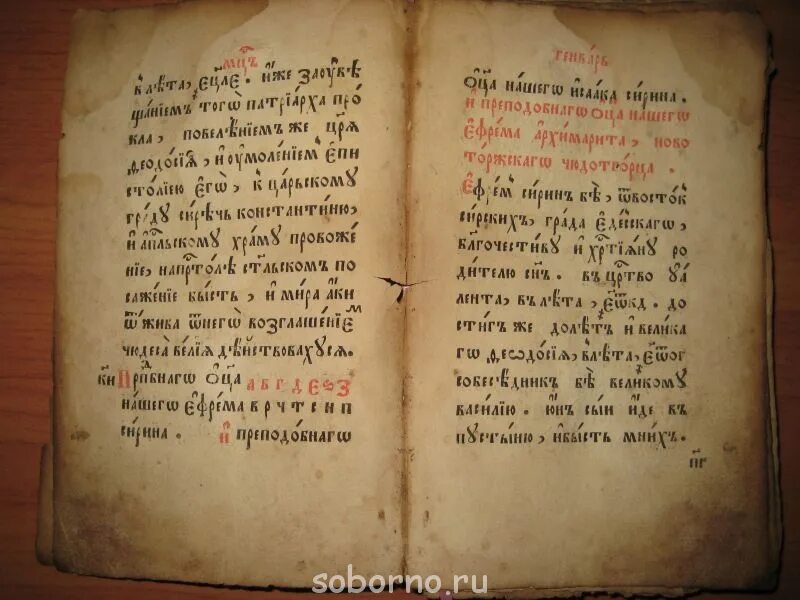 мц҃ъ
в лѣта, є҃ц҃ле҃. и҆́же заѹвѣ
щанїемъ тогѡ патрїа́рха про́
кла, повелѣ́нїемъ же цр҃ѧ
деодо́сїѧ, и҆ ѹмоле́нїемъ є҆пи
сто́лїею є҆гѡ̀, к ца́рьскому
гра́ду си́рѣчь константи́ню,
и҆ а҆пⷭ҇льскому хра́му провоже́
нїе, на прⷭ҇то́лѣ ст҃льскомъ по
саже́нїе бы́сть, и҆ ми́ра а҆́ки
ѿ жива ѿ негѡ̀ возглаше́нїємъ
чюдеса̀ ве́лїѧ дѣ́йствовахусѧ.
к҃и Прпⷣбнагѡ ѻ҆ц҃а̀ а б г д е ѕ з
на́шегѡ є҆фре́ма в р ч т с н п
си́рина. и҆ преподо́бнагѡ
генва́рь
ѻ҆ц҃а̀ на́шегѡ і҆саа́ка си́рина.
и҆ преподо́бнагѡ ѻ҆ц҃а̀ на́шегѡ
є҆фре́ма а҆рхимари́та, ново
то́ржскагѡ чюдотво́рца.
Є҆фре́мъ си́ринъ бѣ̀, ѿ восто́къ
си́рскихъ, гра́да є҆де́сскагѡ,
бл҃гочести́ву и҆ хрⷭ҇тїѧ́ну ро
ди́телю сн҃ъ. въ црⷭ҇тво ѹа
ле́нта, въ лѣ́та,
до
сти́гъ же до лѣ́тъ и҆ вели́ка
гѡ деодо́сїѧ, в лѣ́та,
собесѣ́дникъ бѣ̀ вели́кому
васи́лїю. ю҆́нъ сы́и и҆́де въ
пусты́ню, и҆ бы́сть мни́хъ.
п҃г
soborno.ru